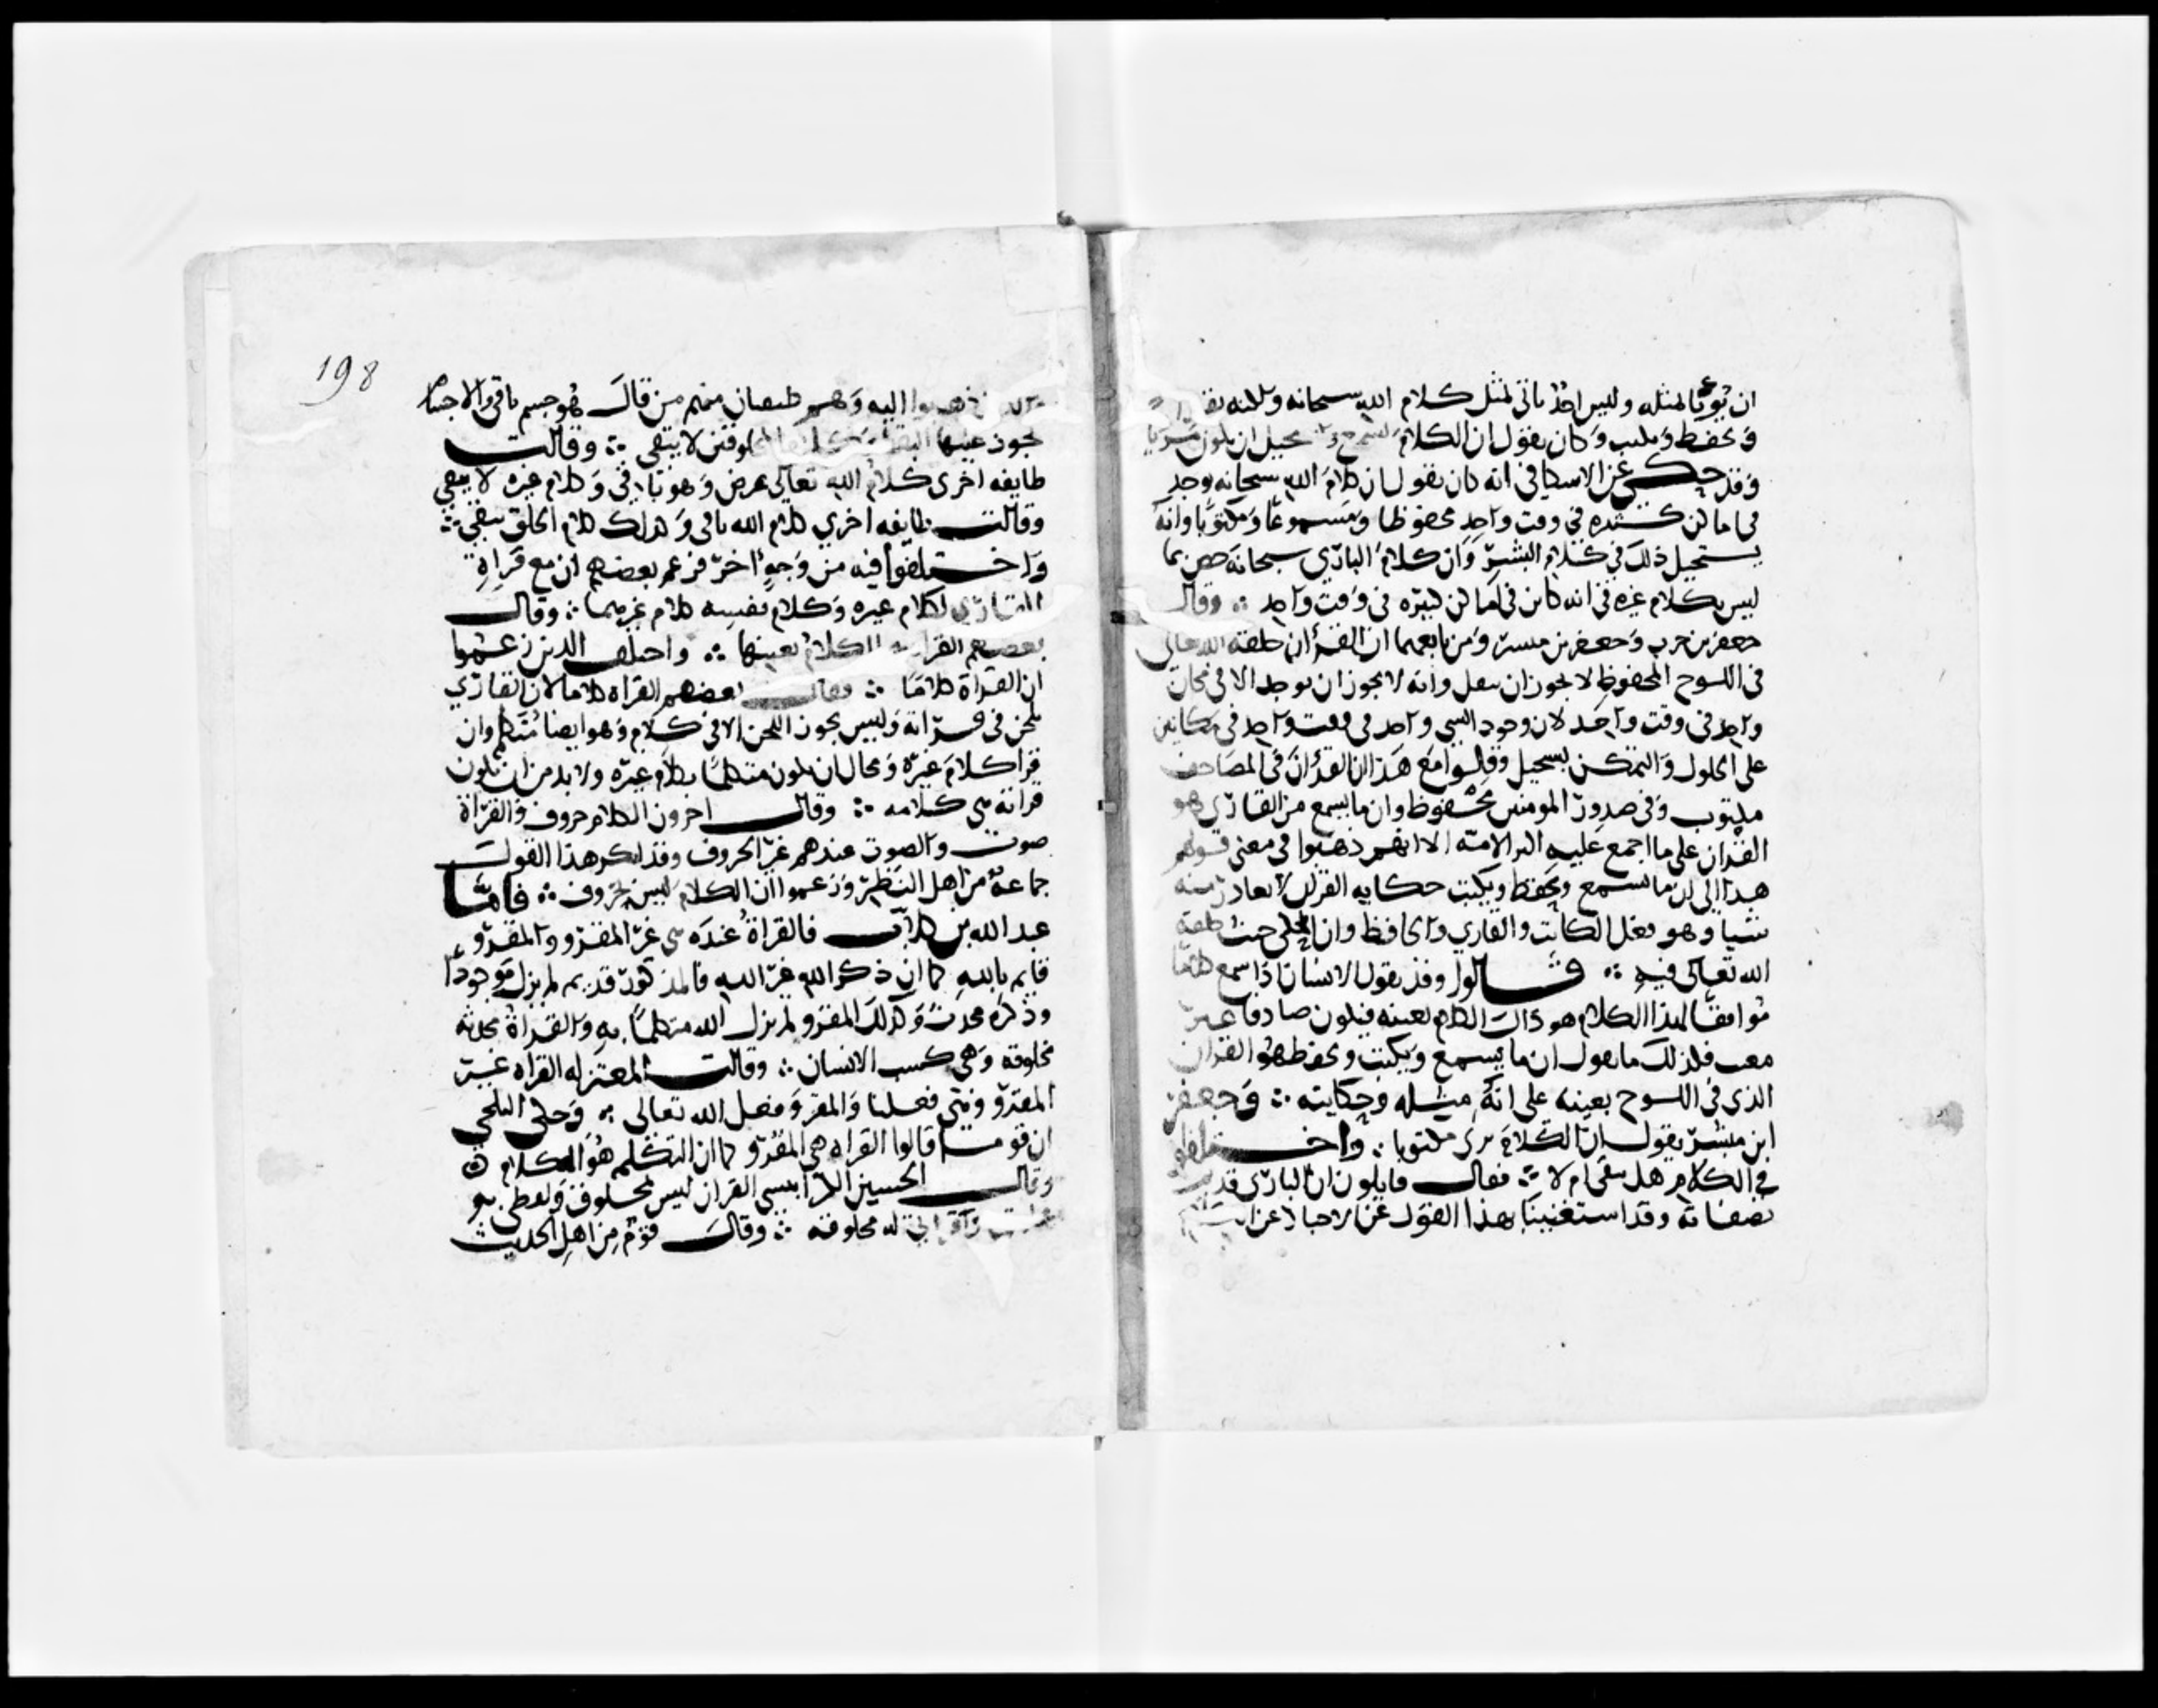 ان يوتا بمثله وليس احد ياتي بمثل كلام الله سبحانه ولكنه
ويحفظ ويكتب وكان يقول ان الكلام يسمع ويستحيل ان يكون مرئيا
وقد حكي عن الاسكافي انه كان يقول ان كلام الله سبحانه يوجد
في اماكن كثيره في وقت واحد محفوظا ومسموعا ومكتوبا وانه
يستحيل ذلك في كلام البشر وان كلام الباري سبحانه خص بما
ليس بكلام غيره في انه كاين في اماكن كثيره في وقت واحد ؞ وقال
جعفر بن حرب وجعفر بن مبشر ومن تابعهما ان القران خلقه الله تعالى
في اللوح المحفوظ لا يجوز ان ينقل وانه لا يجوز ان يوجد الا في مكان
واحد في وقت واحد لان وجود الشي واحد في وقت واحد في مكانين
على الحلول والتمكن يستحيل وقالوا مع هذا ان القران في المصاحف
مكتوب وفي صدور المومنين محفوظ وان ما يسمع من القاري هو
القران على ما اجمع عليه اكثر الامه الا انهم ذهبوا في معنى قولهم
هذا الى ان ما يسمع ويحفظ ويكتب حكايه القران لا يغادر منه
شيا وهو فعل الكاتب والقاري والحافظ وان المحكي حيث خلقه
الله تعالى فيه ؞ قالوا وقد يقول الانسان اذا سمع كلاما
موافقا لهذا الكلام هو ذاك الكلام بعينه فيكون صادقا غير
معيب فلذلك ما نقول ان ما يسمع ويكتب ويحفظ هو القران
الذي في اللوح بعينه على انه مثله وحكايته ؞ وجعفر
ابن مبشر يقول ان الكلام يرى مكتوبا ؞ واختلفوا
في الكلام هل يبقى ام لا ؞ فقال قايلون ان الباري قديم
بصفاته وقد استغنينا بهذا القول عن الاخبار عن
198
ذهبوا اليه وهم طبقتان منهم من قال هو جسم باق والاجسام
يجوز عليها البقا وكلام المخلوقين لا يبقى ؞ وقالت
طايفه اخرى كلام الله تعالى عرض وهو باق وكلام غيره لا يبقى
وقالت طايفه اخرى كلام الله باق وكذلك كلام الخلق يبقى ؞
واختلفوا فيه من وجه اخر فزعم بعضهم ان مع قراة
القاري لكلام غيره وكلام نفسه كلام غيرهما ؞ وقال
بعضهم القراة الكلام بعينها ؞ واختلف الذين زعموا
ان القراة كلاما ؞ فقال بعضهم القراة كلاما لان القاري
يلحن في قراته وليس يجوز اللحن الا في كلام وهو ايضا متكلم وان
قرا كلام غيره ومحال ان يكون متكلما بكلام غيره ولا بد من ان يكون
قراته هي كلامه ؞ وقال اخرون الكلام حروف والقراة
صوت والصوت عندهم غير الحروف وقد انكر هذا القول
جماعة من اهل النظر وزعموا ان الكلام ليس بحروف ؞ فاما
عبد الله بن كلاب فالقراة عنده هي غير المقرو والمقرو
قايم بالله كما ان ذكر الله غير الله فالمذكور قديم لم يزل موجودا
وذكره محدث وكذلك المقرو لم يزل الله متكلما به والقراة محدثه
مخلوقه وهي كسب الانسان ؞ وقالت المعتزله القراة غير
المقرو وهي فعلنا والمقرو فعل الله تعالى ؞ وحكى البلخي
ان قوما قالوا القراه هي المقرو كما ان التكلم هو الكلام
وقال الحسين الكرابيسي القران ليس بمخلوق ولفظي به
وقراتي له مخلوقه ؞ وقال قوم من اهل الحديث